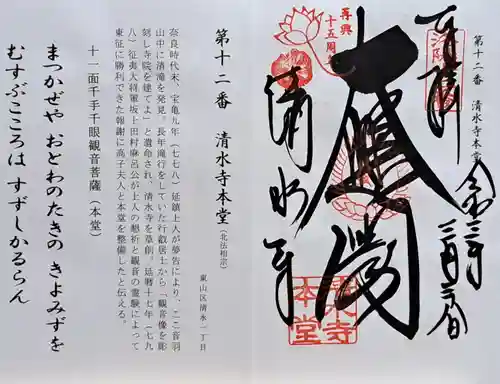 第十二番 清水寺本堂
奉拝
令和三年
三月三日
再興
十五周
大悲閣
清水寺
本堂
第十二番 清水寺本堂(北法相宗)
東山区清水一丁目
奈良時代末、宝亀九年(七七八)延鎮上人が夢告により、ここ音羽
山中に清滝を発見。長年滝行をしていた行叡居士から「観音像を彫
刻し寺院を建てよ」と遺命され、清水寺を草創。延暦十七年(七九
八)征夷大将軍坂上田村麻呂公が上人の懇祈と観音の霊験によって
東征に勝利できた報謝に高子夫人と本堂を整備したと伝える。
十一面千手千眼観音菩薩(本堂)
まつかぜや おとわのたきの きよみずを
むすぶこころは すずしかるらん